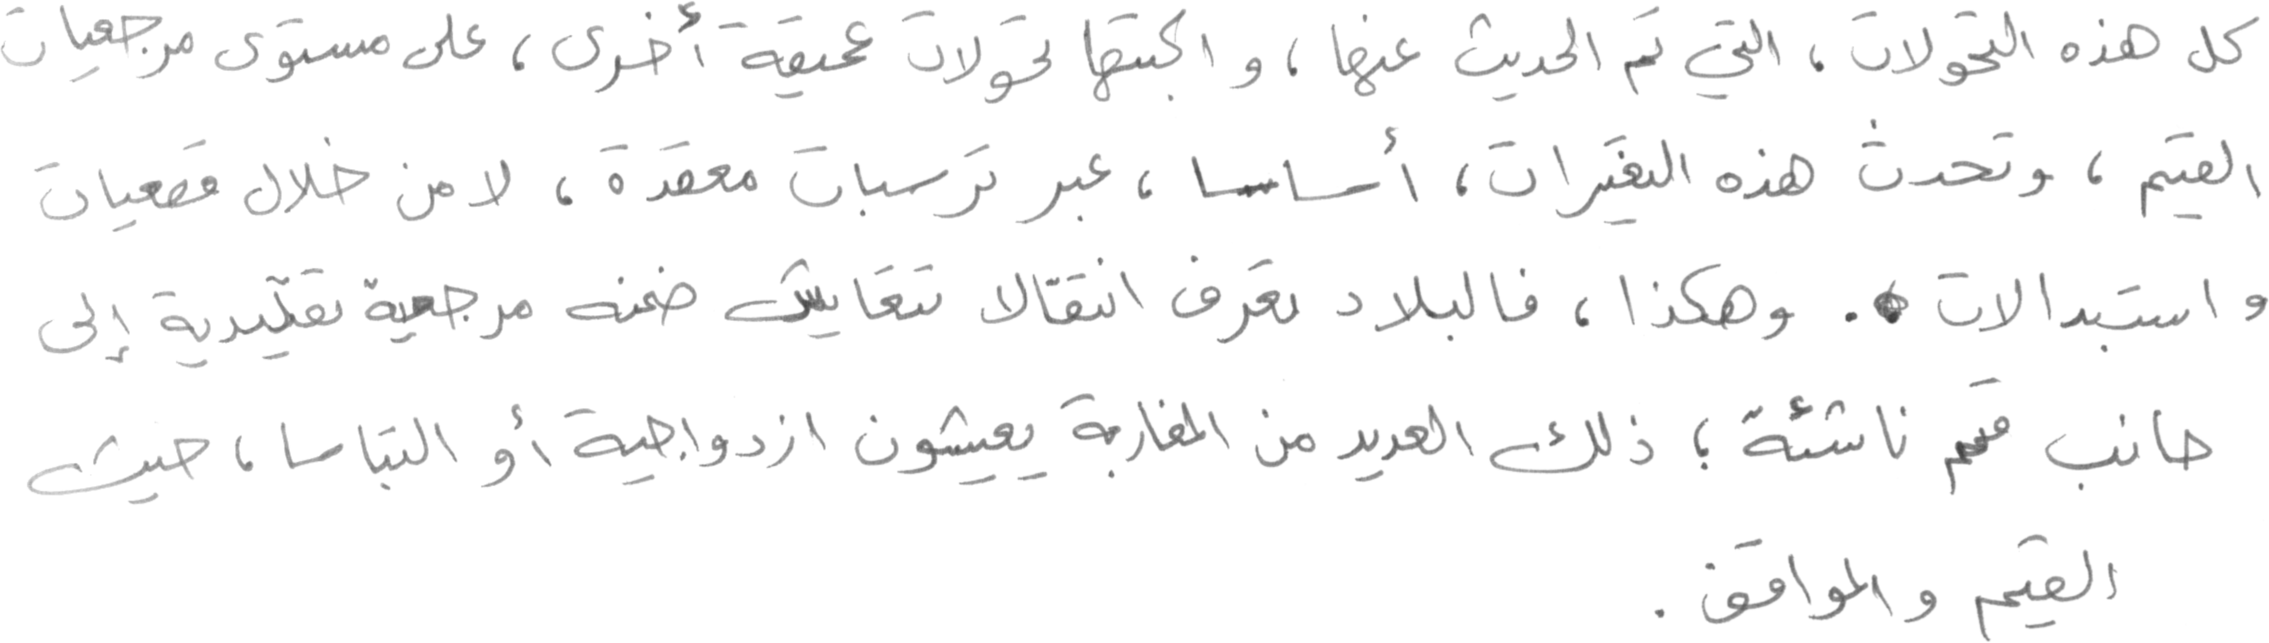 كل هذه التحولات، التي تم الحديث عنها، واكبتها تحولات عميقة أخرى، على مستوى مرجعيات
القيم، وتحدث هذه التغيرات، أساسا، عبر ترسبات معقدة، لا من خلال قطعيات
واستبدالات. وهكذا، فالبلاد تعرف انتقالا تتعايش ضمنه مرجعية تقليدية إلى
جانب قيم ناشئة؛ ذلك العديد من المغاربة يعيشون ازدواجية أو التباسا، حيث
القيم والمواقف.